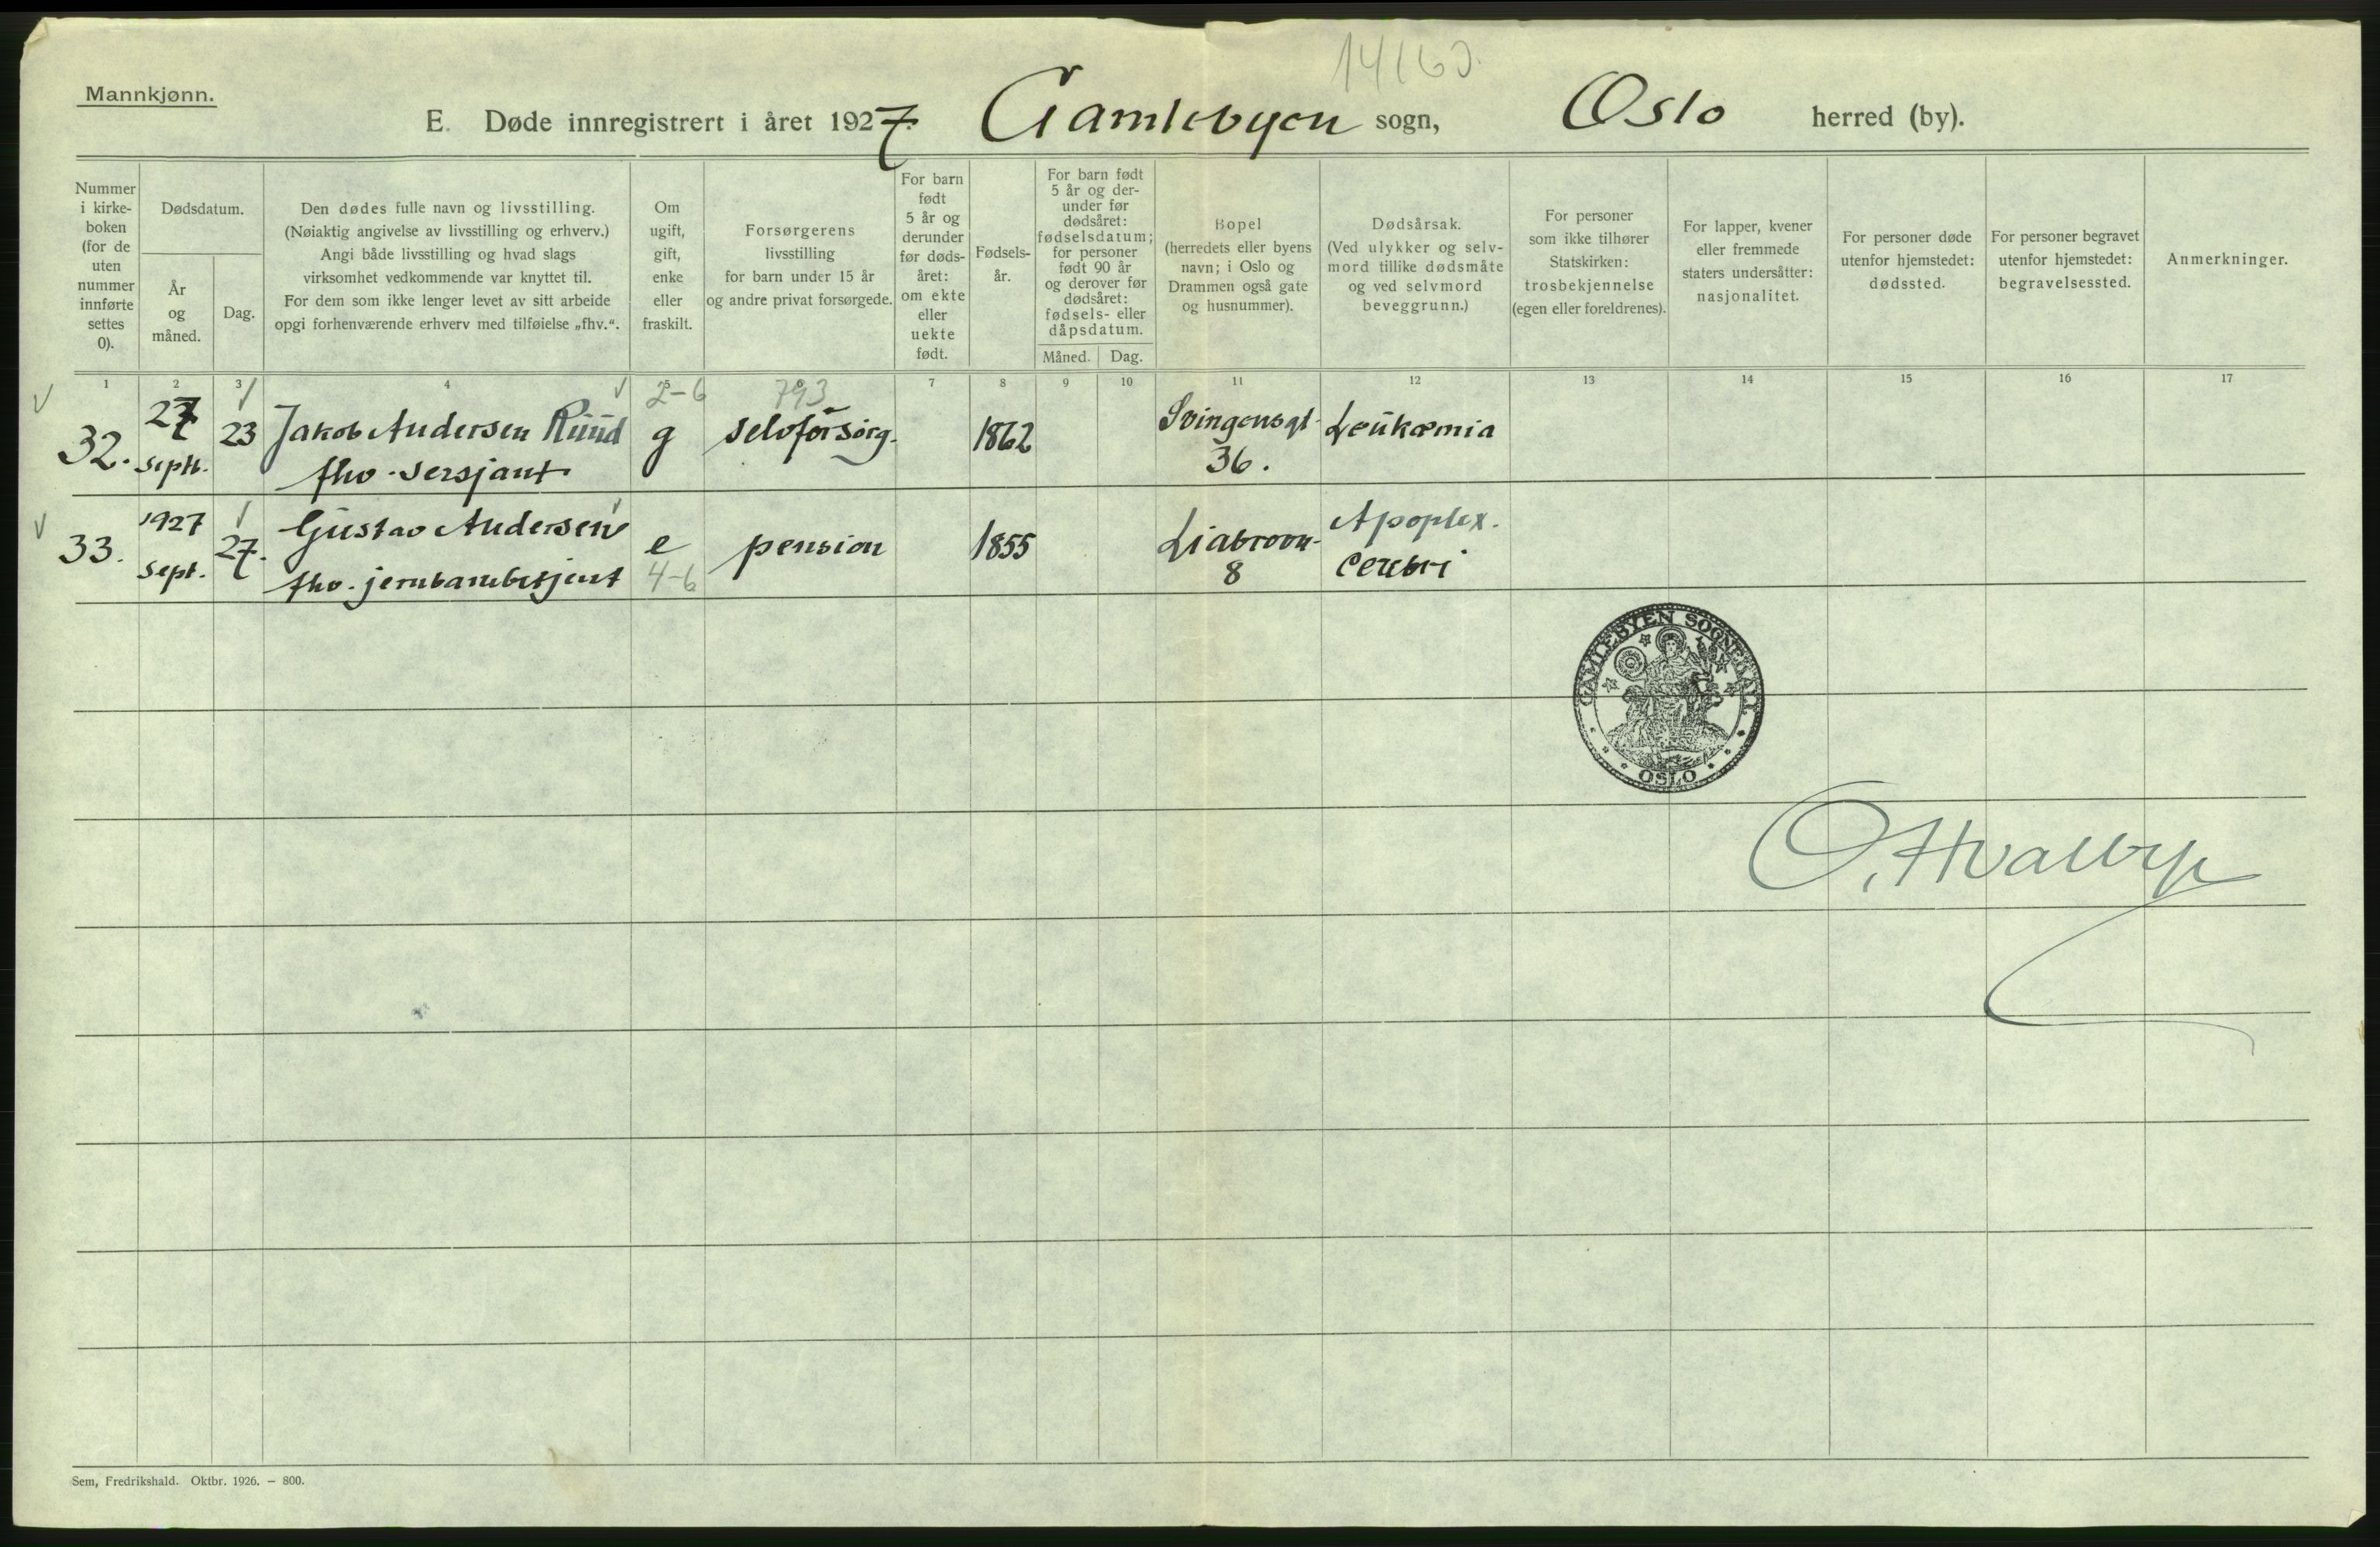 14160.
Mannkjønn.
E. Døde innregistrert i året 1927. Gamlebyen sogn, Oslo herred (by).
Nummer
i kirke-
boken
(for de
uten
nummer
innførte
settes
0).
Dødsdatum.
År
og
måned.
Dag.
Den dødes fulle navn og livsstilling.
(Nøiaktig angivelse av livsstilling og erhverv.)
Angi både livsstilling og hvad slags
virksomhet vedkommende var knyttet til.
For dem som ikke lenger levet av sitt arbeide
opgi forhenværende erhverv med tilføielse „fhv.“.
Om
ugift,
gift,
enke
eller
fraskilt.
Forsørgerens
livsstilling
for barn under 15 år
og andre privat forsørgede.
For barn
født
5 år og
derunder
før døds-
året:
om ekte
eller
uekte
født.
Fødsels-
år.
For barn født
5 år og der-
under før
dødsåret:
fødselsdatum;
for personer
født 90 år
og derover før
dødsåret:
fødsels- eller
dåpsdatum.
Måned. Dag.
Bopel
(herredets eller byens
navn; i Oslo og
Drammen også gate
og husnummer).
Dødsårsak.
(Ved ulykker og selv-
mord tillike dødsmåte
og ved selvmord
beveggrunn.)
For personer
som ikke tilhører
Statskirken:
trosbekjennelse
(egen eller foreldrenes).
For lapper, kvener
eller fremmede
staters undersåtter:
nasjonalitet.
For personer døde
utenfor hjemstedet:
dødssted.
For personer begravet
utenfor hjemstedet:
begravelsessted.
Anmerkninger.
1 2 3 4 5 6 7 8 9 10 11 12 13 14 15 16 17
2-6 793
32. 27 23 Jakob Andersen Ruud g selvforsørg. 1862 Svingensgt. Leukæmia
Septb. fhv. sersjant 36.
33. 1927 27. Gustav Andersen e pension 1855 Liabrovn. Apoplex.
Sept. fhv. jernbanebetjent 4-6 8 Cerebri
GAMLEBYEN SOGNEKALL
OSLO
O. Hvalbye
Sem, Fredrikshald. Oktbr. 1926. — 800.